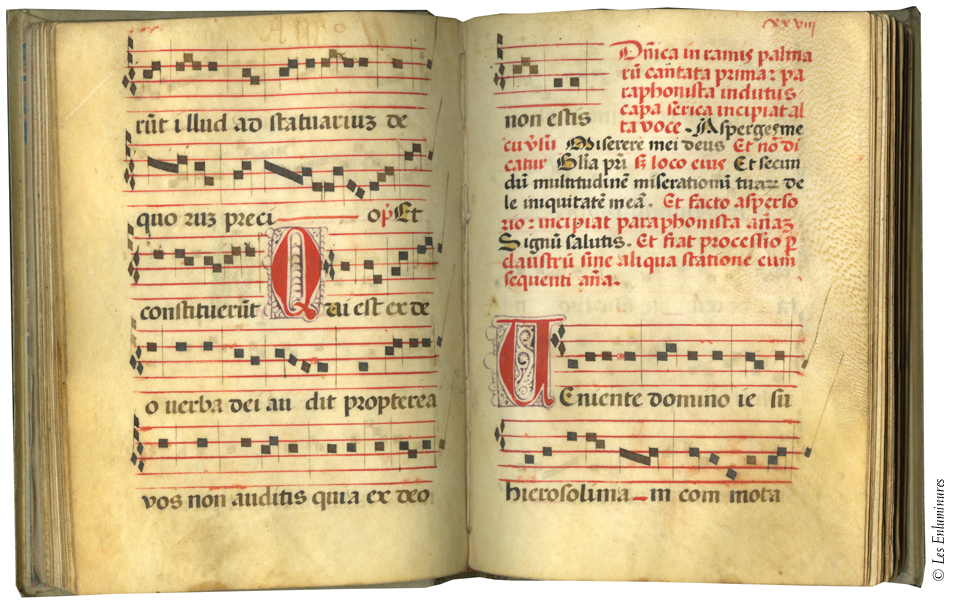 rūt illud ad statuariuz de
quo ruz preci op̄ Et
constituerūt Qui est ex de
o verba dei au dit propterea
vos non auditis quia ex deo
xxviij
non estis
Dn̄ica in ramis palma
rū cantata prima: pa
raphonista indutus
capa serica incipiat al
ta voce. Asperges me
cu v̄sū Miserere mei deus Et nō di
catur Gl̄ia pr̄i s̄i loco eius Et secun
dū multitudinē miserationū tuarz de
le iniquitatē meā. Et facto asperso
rio: incipiat paraphonista añaz
Signū salutis. Et fiat processio p̄
claustrū sine aliqua statione cum
sequenti añā.
Veniente domino ie su
hierosolima in com mota
© Les Enluminures